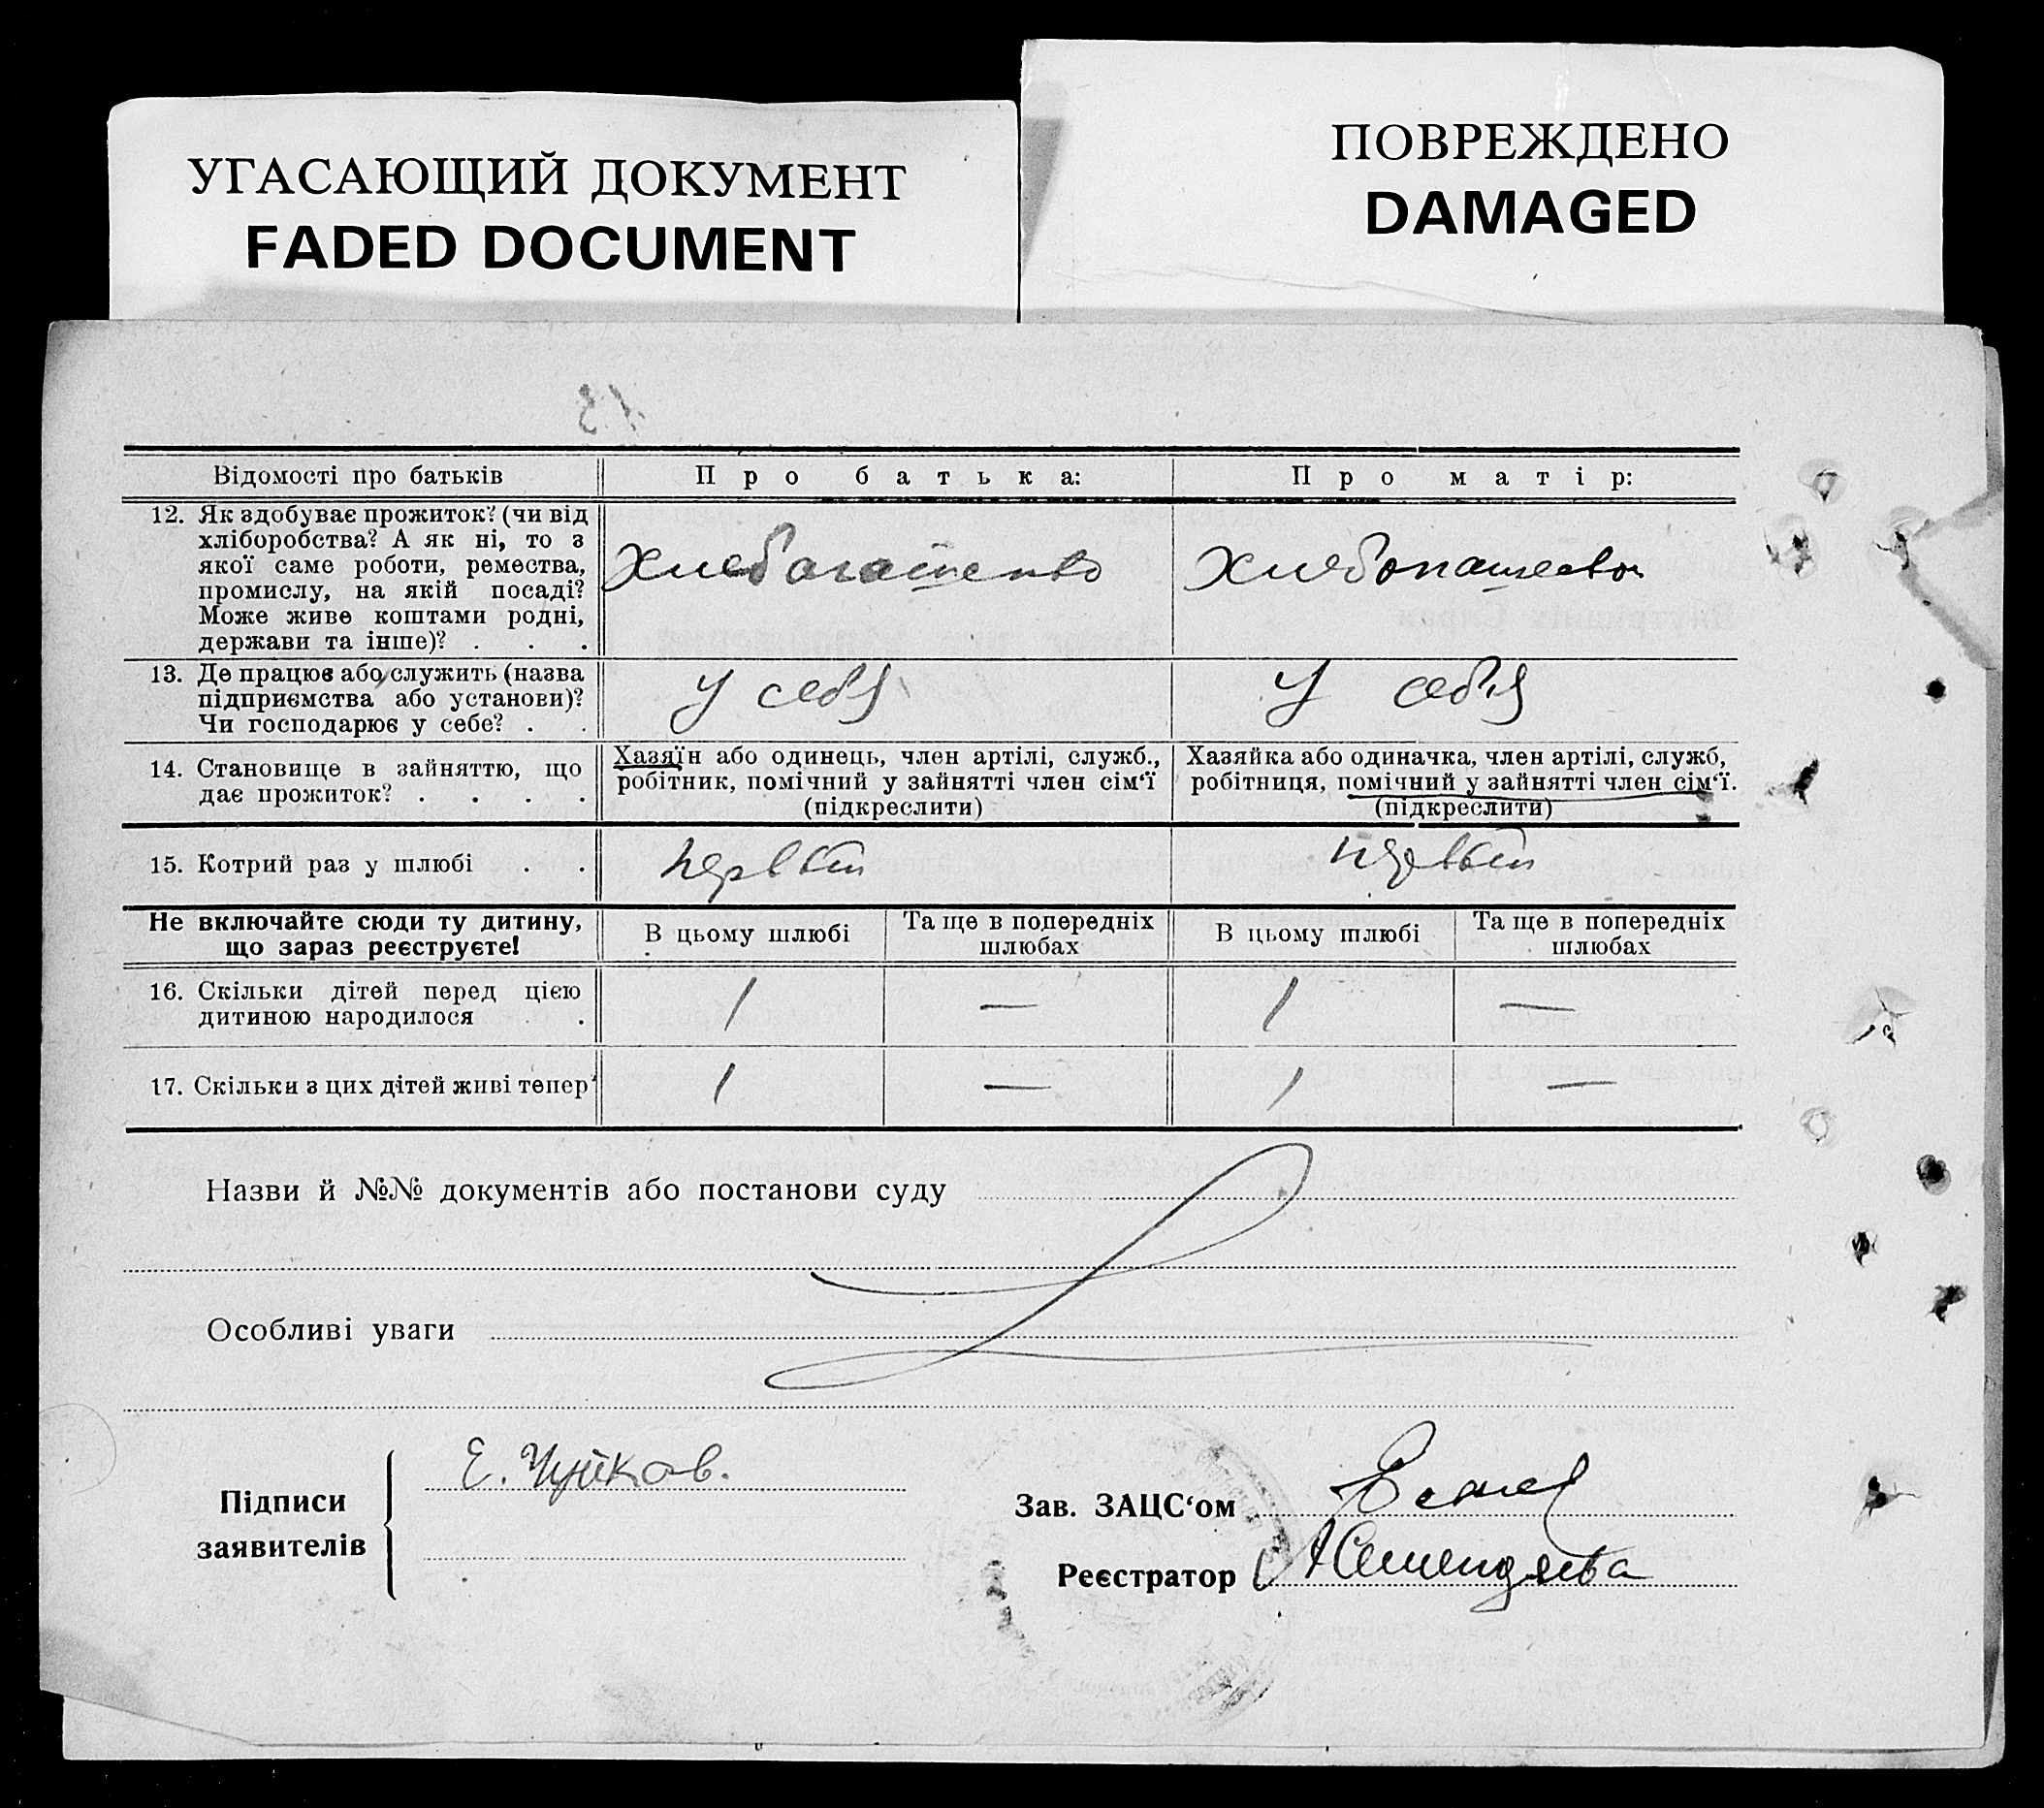 УГАСАЮЩИЙ ДОКУМЕНТ
FADED DOCUMENT
ПОВРЕЖДЕНО
DAMAGED
13
Відомості про батьків
Про батька:
Про матір:
12. Як здобуває прожиток? (чи від
хліборобства? А як ні, то з
якої саме роботи, ремества,
промислу, на якій посаді?
Може живе коштами родні,
держави та інше)? . . .
Хлебопашество
Хлебопашество
13. Де працює або служить (назва
підприємства або установи)?
Чи господарює у себе? . .
У себя
У себя
14. Становище в зайняттю, що
дає прожиток? . . . .
Хазяїн або одинець, член артілі, служб.,
робітник, помічний у зайнятті член сім‘ї
(підкреслити)
Хазяйка або одиначка, член артілі, служб,
робітниця, помічний у зайнятті член сім‘ї.
(підкреслити)
15. Котрий раз у шлюбі . .
первый
первый
Не включайте сюди ту дитину,
що зараз реєструєте!
В цьому шлюбі
Та ще в попередніх
шлюбах
В цьому шлюбі
Та ще в попередніх
шлюбах
16. Скільки дітей перед цією
дитиною народилося .
1 — 1 —
17. Скільки з цих дітей живі тепер
1 — 1 —
Назви й №№ документів або постанови суду
Особливі уваги
Підписи
заявителів
Е. Чуйков.
Зав. ЗАЦС‘ом
Реєстратор